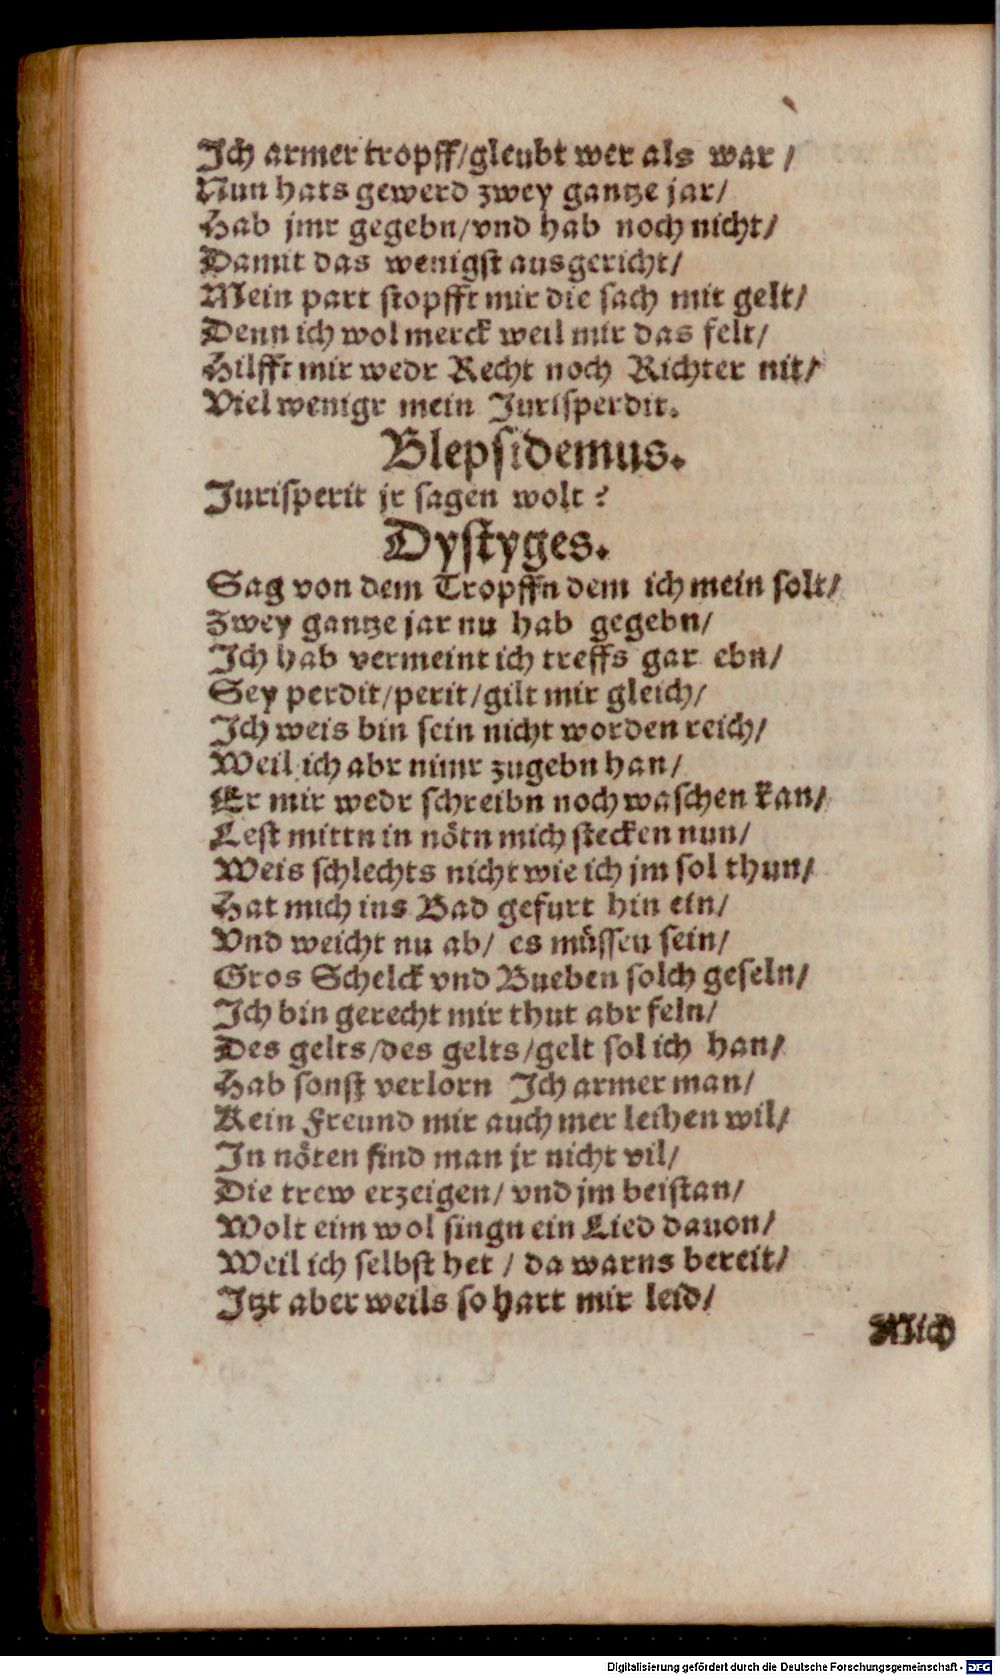 Ich armer tropff/gleubt wer als war /
Nun hats gewerd zwey gantze jar/
Hab jmr gegebn/vnd hab noch nicht/
Damit das wenigst ausgericht/
Mein part stopfft mir die sach mit gelt/
Denn ich wol merck weil mir das felt/
Hilfft mir wedr Recht noch Richter nit/
Viel wenigr mein Jurisperdit.
Blepsidemus.
Jurisperit jr sagen wolt?
Dystyges.
Sag von dem Tropffn dem ich mein solt/
Zwey gantze jar nu hab gegebn/
Ich hab vermeint ich treffs gar ebn/
Sey perdit/perit/gilt mir gleich/
Ich weis bin sein nicht worden reich/
Weil ich abr nimr zugebn han/
Er mir wedr schreibn noch waschen kan/
Lest mittn in nötn mich stecken nun/
Weis schlechts nicht wie ich jm sol thun/
Hat mich ins Bad gefurt hin ein/
Vnd weicht nu ab/ es müssen sein/
Gros Schelck vnd Bueben solch geseln/
Ich bin gerecht mir thut abr feln/
Des gelts/des gelts/gelt sol ich han/
Hab sonst verlorn Ich armer man/
Kein Freund mir auch mer leihen wil/
In nöten find man jr nicht vil/
Die trew erzeigen/ vnd jm beistan/
Wolt eim wol singn ein Lied dauon/
Weil ich selbst het / da warns bereit/
Itzt aber weils so hart mir leid/
Mich
Digitalisierung gefördert durch die Deutsche Forschungsgemeinschaft - DFG